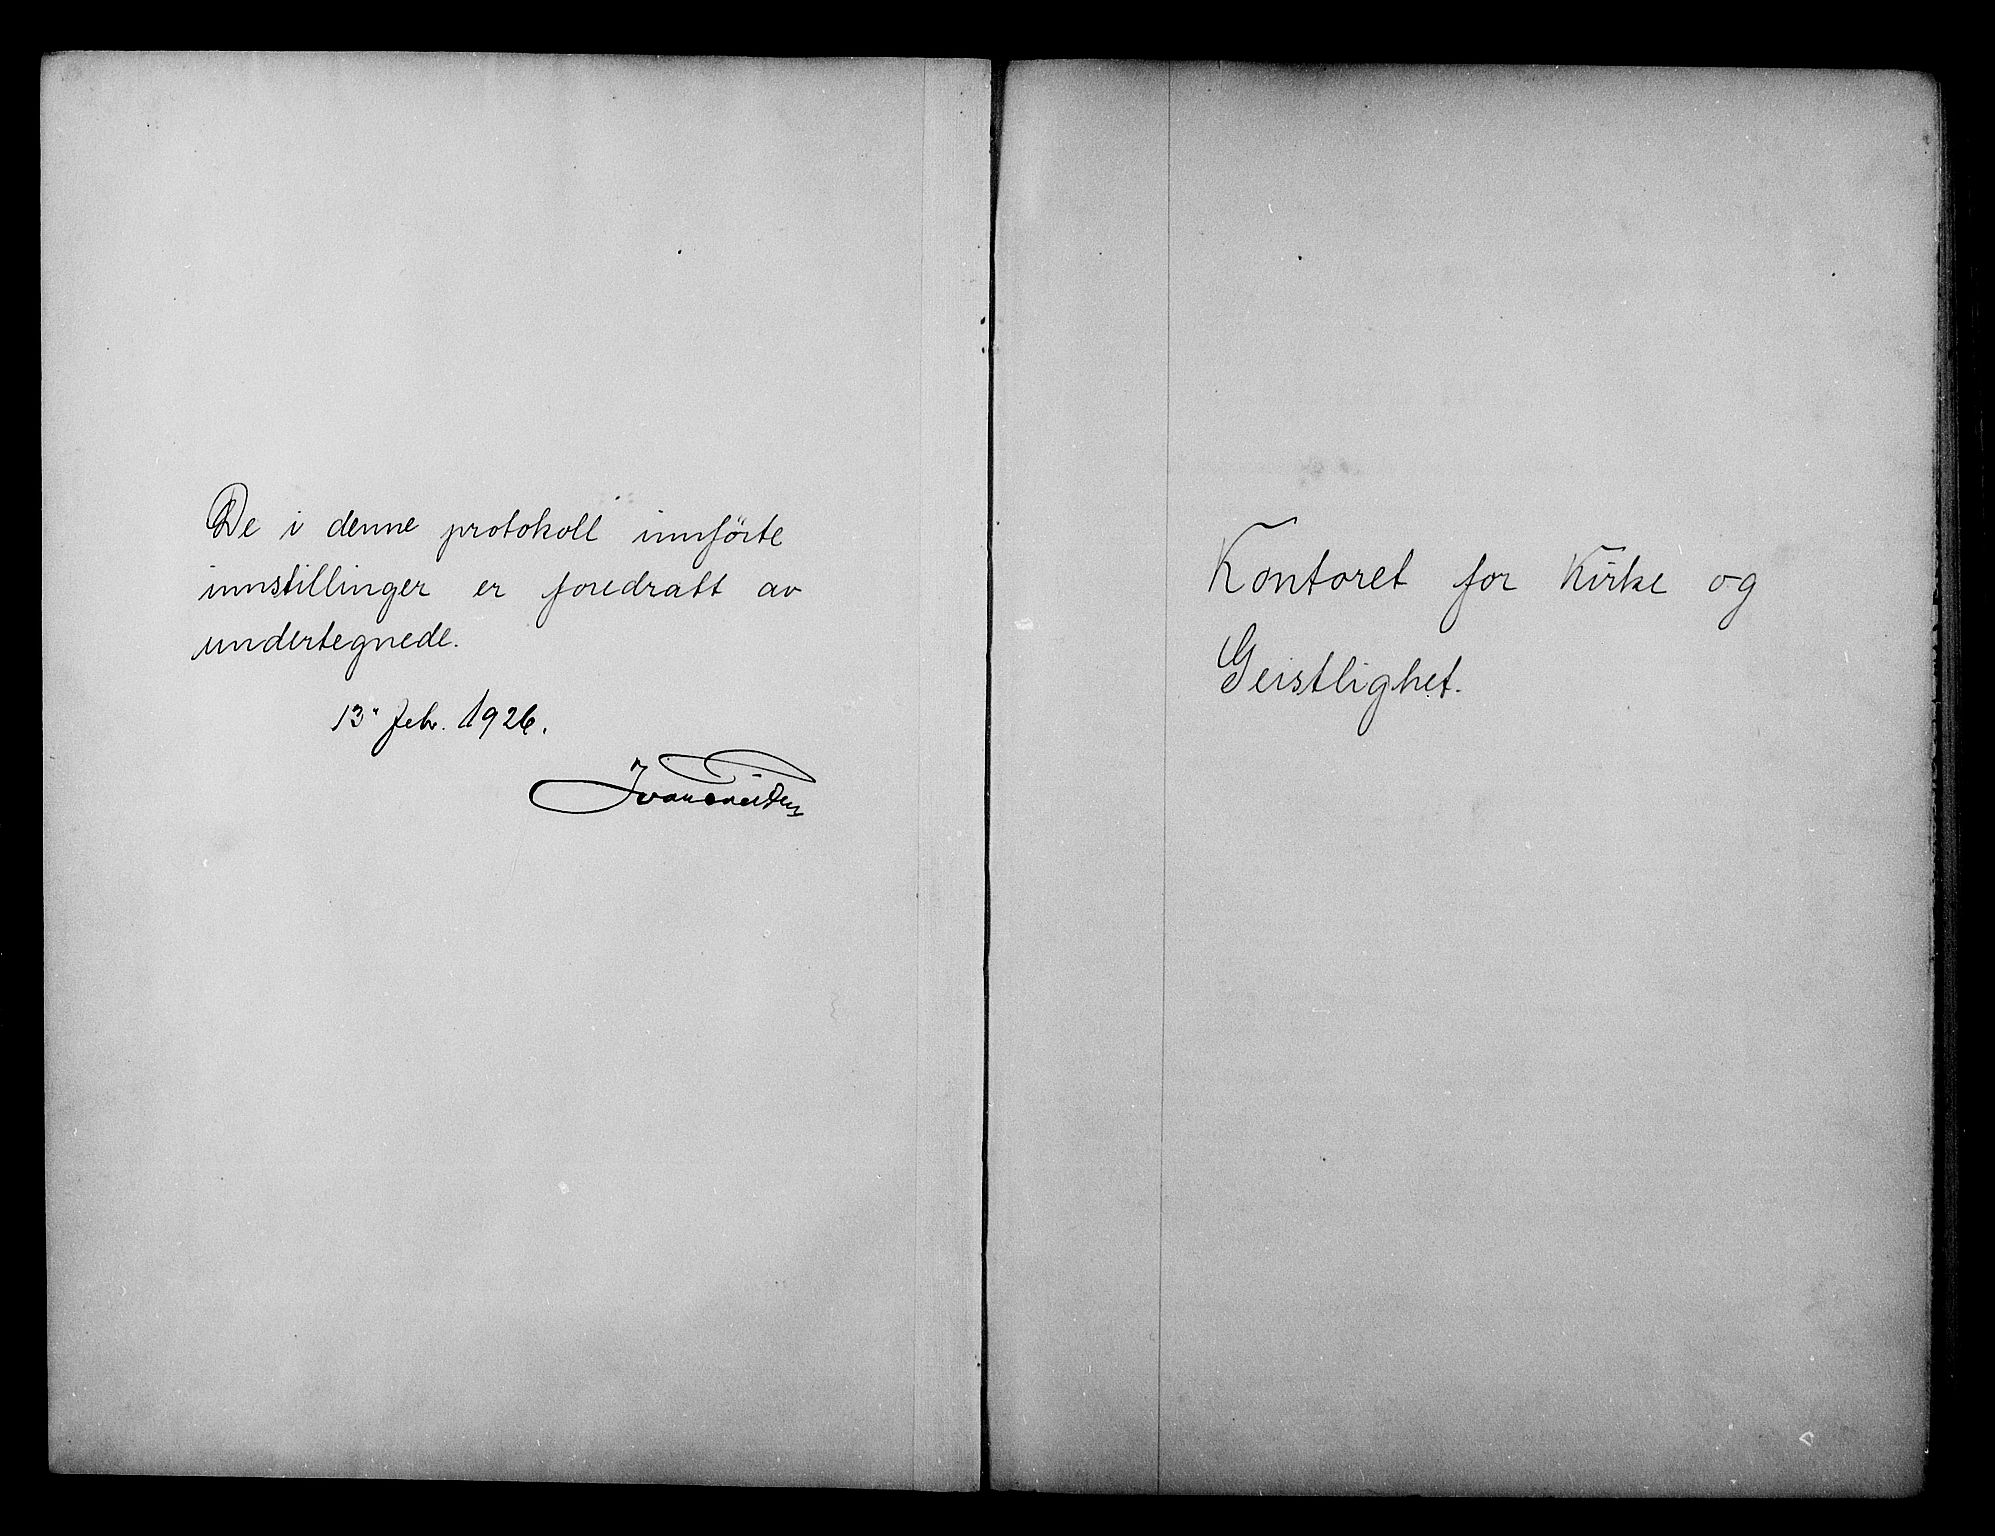 De i denne protokoll innförte
innstillinger er foredratt av
undertegnede.
13. Febr. 1926.
Kontoret for Kirke og
Geistlighet.